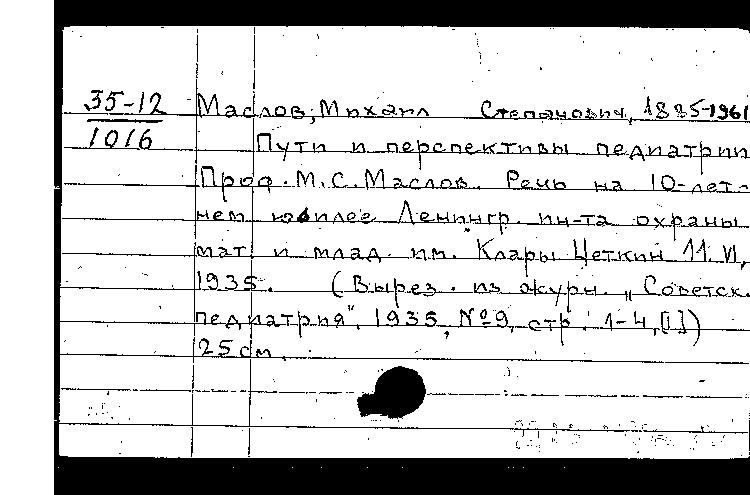 35-12
1016
Маслов, Михаил Степанович, 1885-1961
Пути и перспективы педиатрии
Проф. М. С. Маслов. Речь на 10-лет-
нем юбилее Ленингр. ин-та охраны
мат. и млад. им. Клары Цеткин 11. VI,
1935. (Вырез. из журн. „Советск.
педиатрия", 1935, №9, стр. 1-4, [1])
25 см.